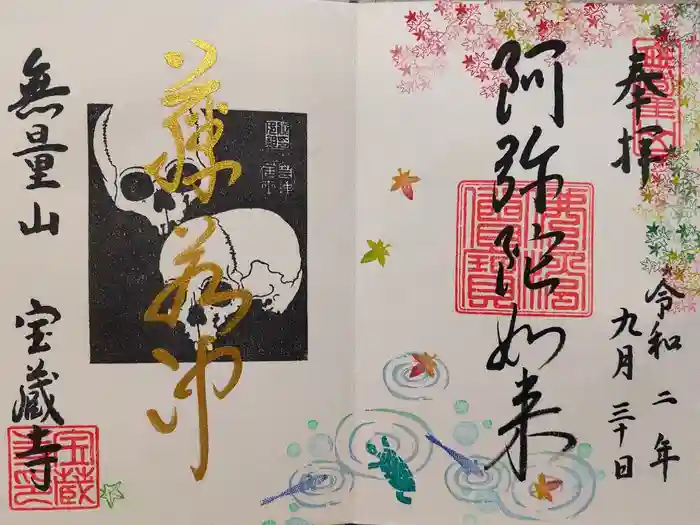 奉拝
阿弥陀如来
令和二年
九月三十日
藤若冲
無量山
宝蔵寺